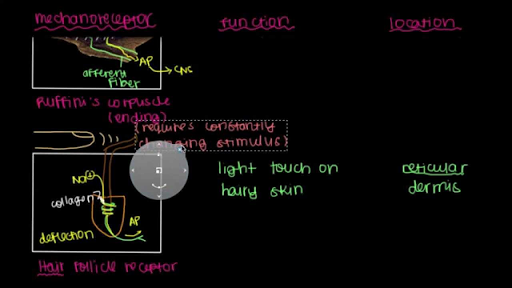 mechanoreceptor function location
AP
afferent fiber
CNS
Ruffini's corpuscle
(ending)
(requires constantly
changing stimulus)
light touch on reticular
hairy skin dermis
Na⊕
collagen
AP
deflection
Hair follicle receptor